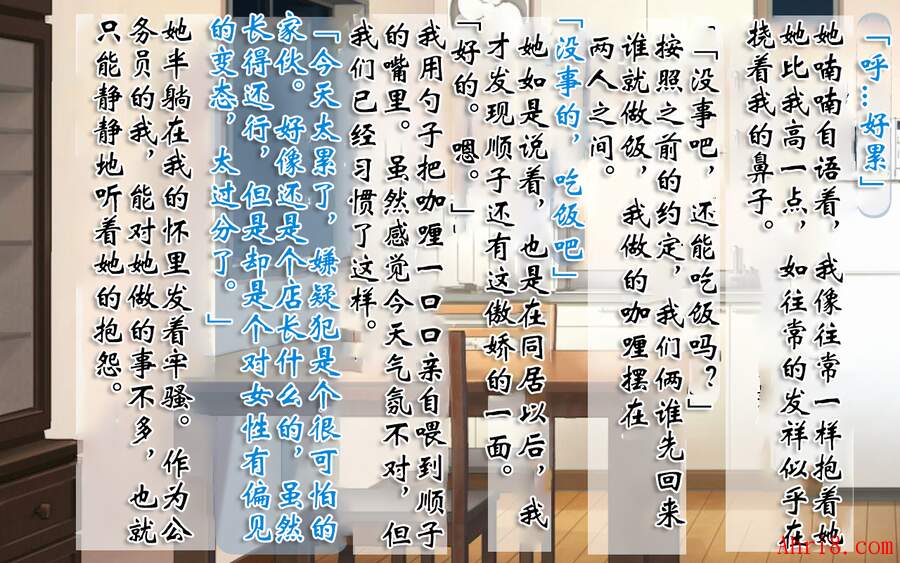 「呼…好累」
她喃喃自语着，我像往常一样抱着她
她比我高一点，如往常的发祥似乎在
挠着我的鼻子。
「没事吧，还能吃饭吗？」
按照之前的约定，我们俩谁先回来
谁就做饭，我做的咖喱摆在
两人之间。
「没事的，吃饭吧」
她如是说着，也是在同居以后，我
才发现顺子还有这傲娇的一面。
「好的。嗯。」
我用勺子把咖喱一口口亲自喂到顺子
的嘴里。虽然感觉今天气氛不对，但
我们已经习惯了这样。
「今天太累了，嫌疑犯是个很可怕的
家伙。好像还是个店长什么的，虽然
长得还行，但是却是个对女性有偏见
的变态，太过分了。」
她半躺在我的怀里发着牢骚。作为公
务员的我，能对她做的事不多，也就
只能静静地听着她的抱怨。
Ahri8.com